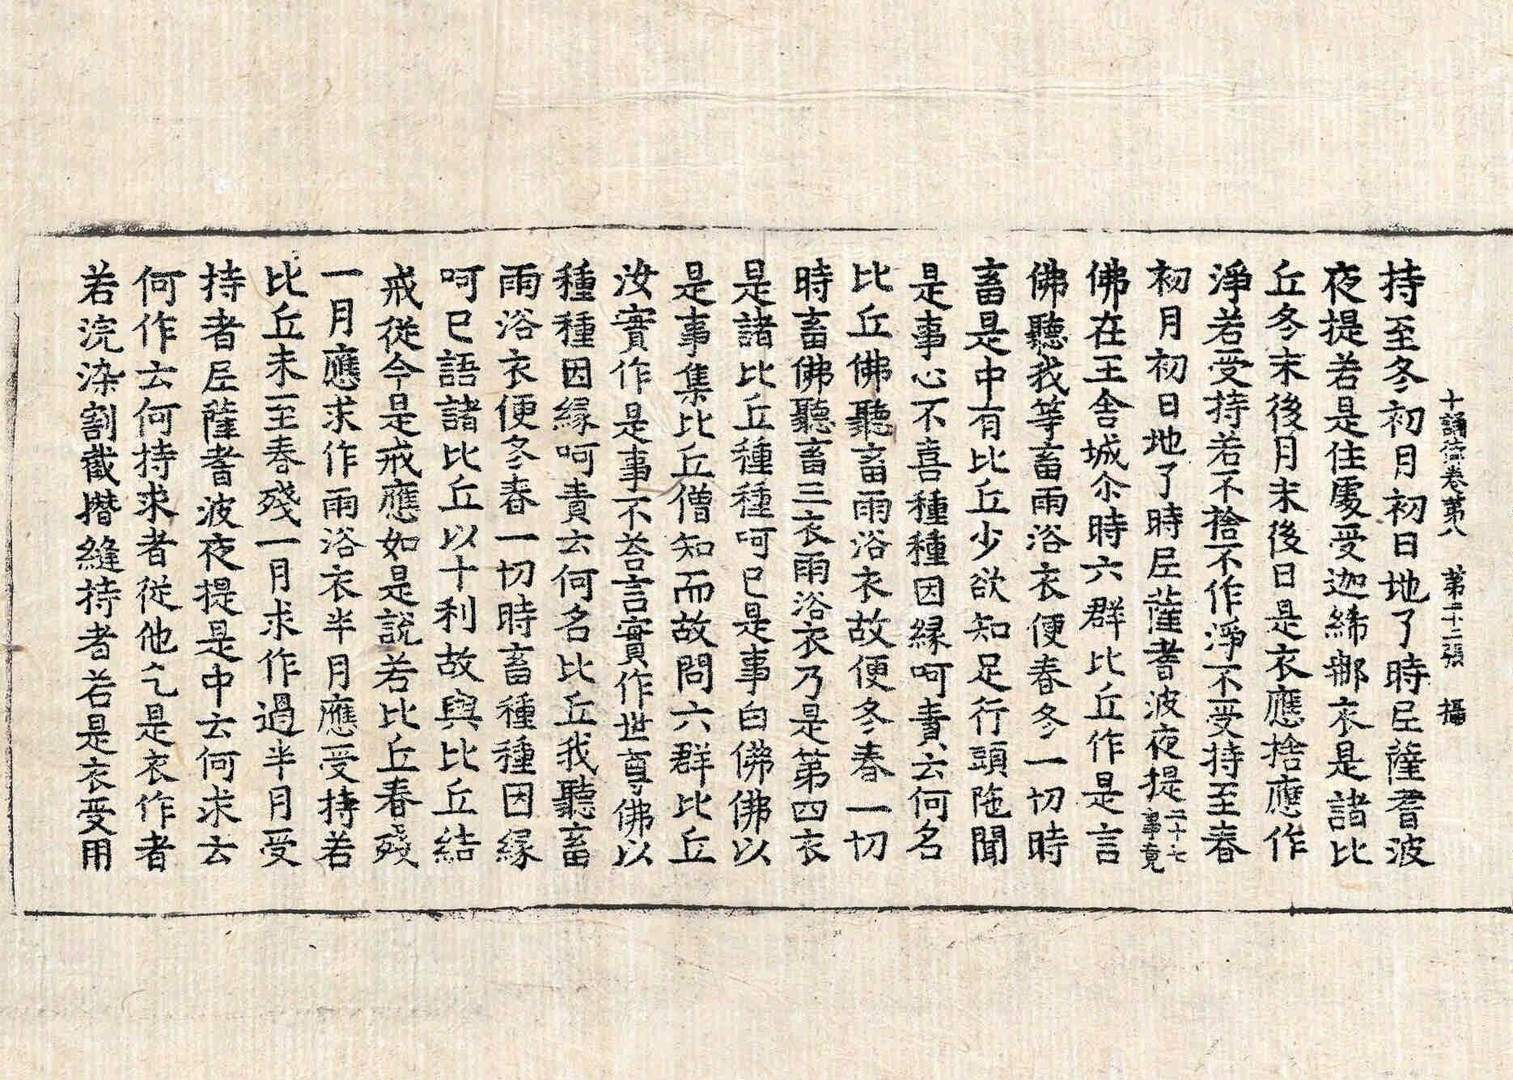 十誦律卷第八 第二十二張 攝
持至冬初月初日地了時尼薩耆波
夜提若是住處受迦絺那衣是諸比
丘冬末後月末後日是衣應捨應作
淨若受持若不捨不作淨不受持至春
初月初日地了時尼薩耆波夜提二十七事竟
佛在王舍城尒時六群比丘作是言
佛聽我等畜雨浴衣便春冬一切時
畜是中有比丘少欲知足行頭陁聞
是事心不喜種種因緣呵責云何名
比丘佛聽畜雨浴衣故便冬春一切
時畜佛聽畜三衣雨浴衣乃是第四衣
是諸比丘種種呵已是事白佛佛以
是事集比丘僧知而故問六群比丘
汝實作是事不荅言實作世尊佛以
種種因緣呵責云何名比丘我聽畜
雨浴衣便冬春一切時畜種種因緣
呵已語諸比丘以十利故與比丘結
戒從今是戒應如是說若比丘春殘
一月應求作雨浴衣半月應受持若
比丘未至春殘一月求作過半月受
持者尼薩耆波夜提是中云何求云
何作云何持求者從他乞是衣作者
若浣染割截攢縫持者若是衣受用